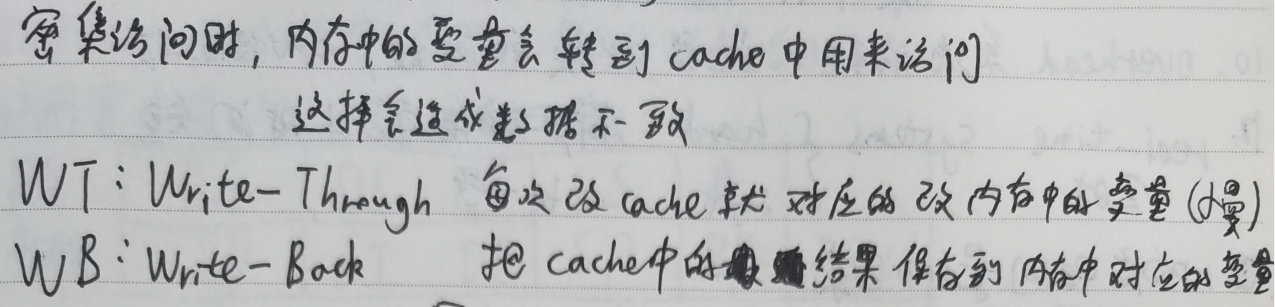 密集访问时，内存中的变量会转到 cache 中用来访问
这样会造成数据不一致
WT：Write-Through 每次改 cache 就对应的改内存中的变量（慢）
WB：Write-Back 把 cache中的结果保存到内存中对应的变量